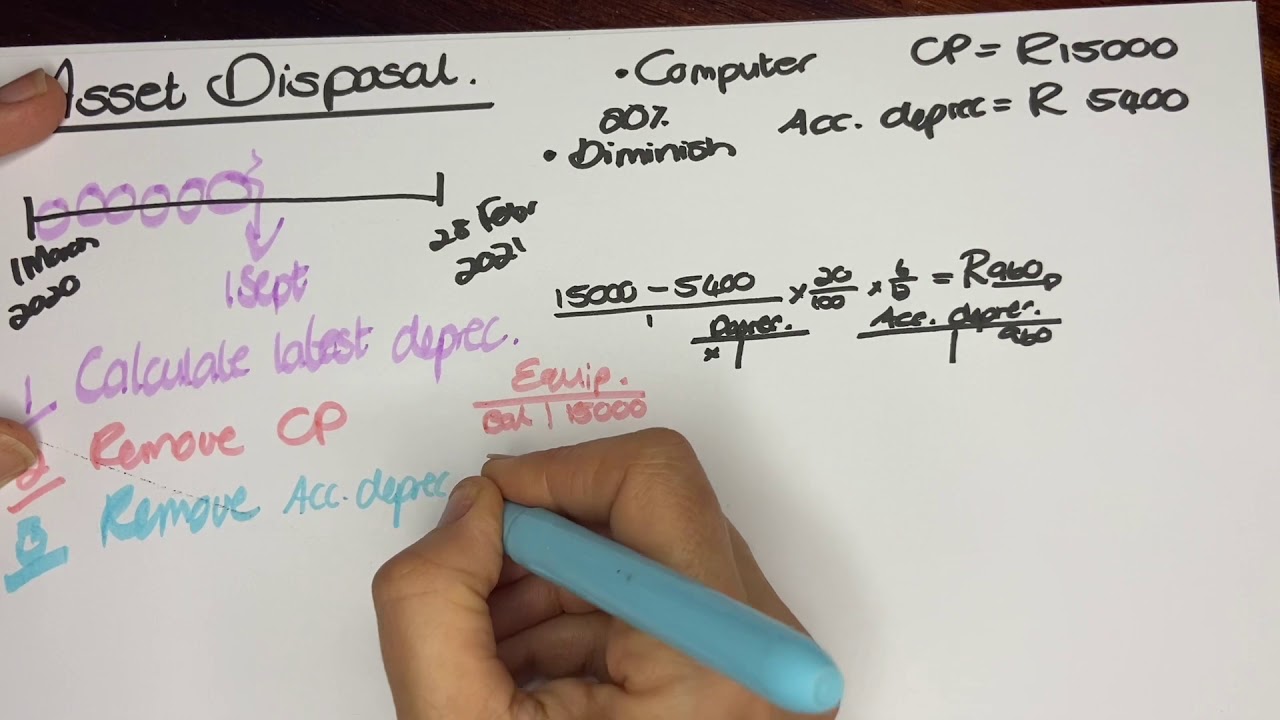 Asset Disposal.
• Computer
20%
• Diminish
CP = R15000
Acc. deprec = R 5400
1 March
2020
1 Sept
28 Febr
2021
15000 - 5400 × 20/100 × 6/12 = R960
1
Deprec.
×
Acc. deprec.
960
1 Calculate latest deprec.
2 Remove CP
Equip.
Bal | 15000
3 Remove Acc. deprec